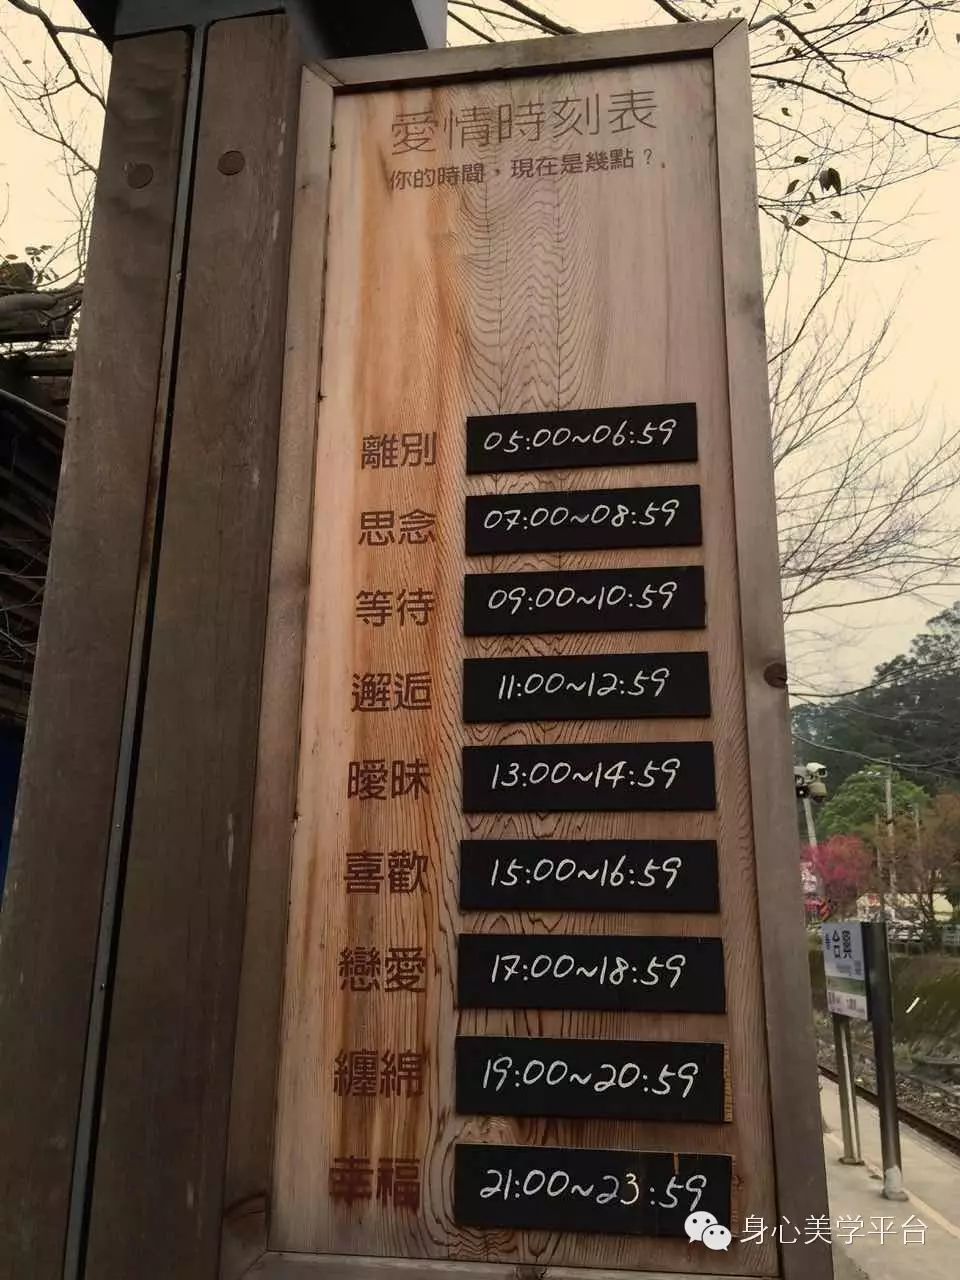 愛情時刻表
你的時間，現在是幾點？
離別 05:00~06:59
思念 07:00~08:59
等待 09:00~10:59
邂逅 11:00~12:59
曖昧 13:00~14:59
喜歡 15:00~16:59
戀愛 17:00~18:59
纏綿 19:00~20:59
幸福 21:00~23:59
身心美学平台